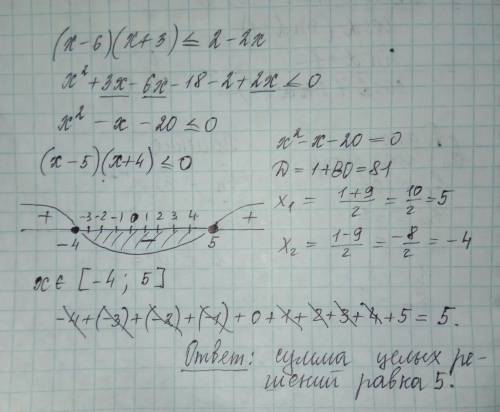 (x-6)(x+3) ≤ 2-2x
x²+3x-6x-18-2+2x ≤ 0
x²-x-20 ≤ 0
(x-5)(x+4) ≤ 0
x²-x-20=0
D=1+80=81
x₁ = (1+9)/2 = 10/2 = 5
x₂ = (1-9)/2 = -8/2 = -4
+ -3 -2 -1 0 1 2 3 4 +
-4 - 5
x∈ [-4; 5]
-4+(-3)+(-2)+(-1)+0+1+2+3+4+5=5.
Ответ: сумма целых ре-
шений равна 5.